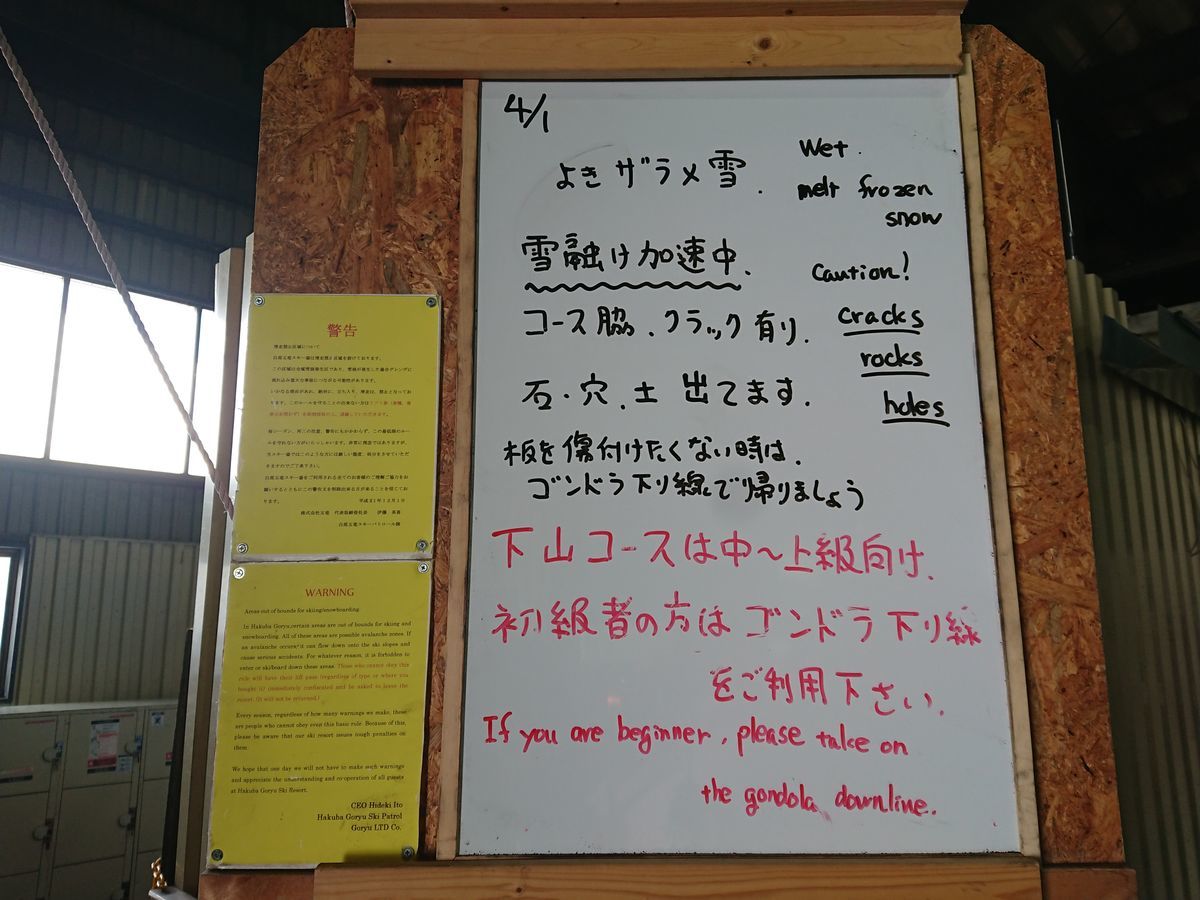 4/1
よきザラメ雪.
Wet.
melt frozen
snow
雪融け加速中.
Caution!
コース脇.クラック有り.
cracks
rocks
石・穴.土 出てます.
holes
板を傷付けたくない時は.
ゴンドラ下り線で帰りましょう
下山コースは中~上級向け.
初級者の方はゴンドラ下り線
をご利用下さい.
If you are beginner, please take on
the gondola downline.
警告
滑走禁止区域について
白馬五竜スキー場は滑走禁止区域を設けております。
株式会社五竜 代表取締役社長 伊藤 英喜
白馬五竜スキーパトロール隊
WARNING
Areas out of bounds for skiing/snowboarding
In Hakuba Goryu,certain areas are out of bounds for skiing and
snowboarding. All of these areas are possible avalanche zones. If
an avalanche occurs, it can flow down onto the ski slopes and
cause serious accidents. For whatever reason, it is forbidden to
enter or ski/board down these areas. Those who cannot obey this
rule will have their lift pass (regardless of type or where you
bought it) immediately confiscated and be asked to leave the
resort. (It will not be returned.)
Every season, regardless of how many warnings we make, there
are people who cannot obey even this basic rule. Because of this,
please be aware that our ski resort issues tough penalties on
them.
We hope that one day we will not have to make such warnings
and appreciate the understanding and co-operation of all guests
at Hakuba Goryu Ski Resort.
CEO Hideki Ito
Hakuba Goryu Ski Patrol
Goryu LTD Co.